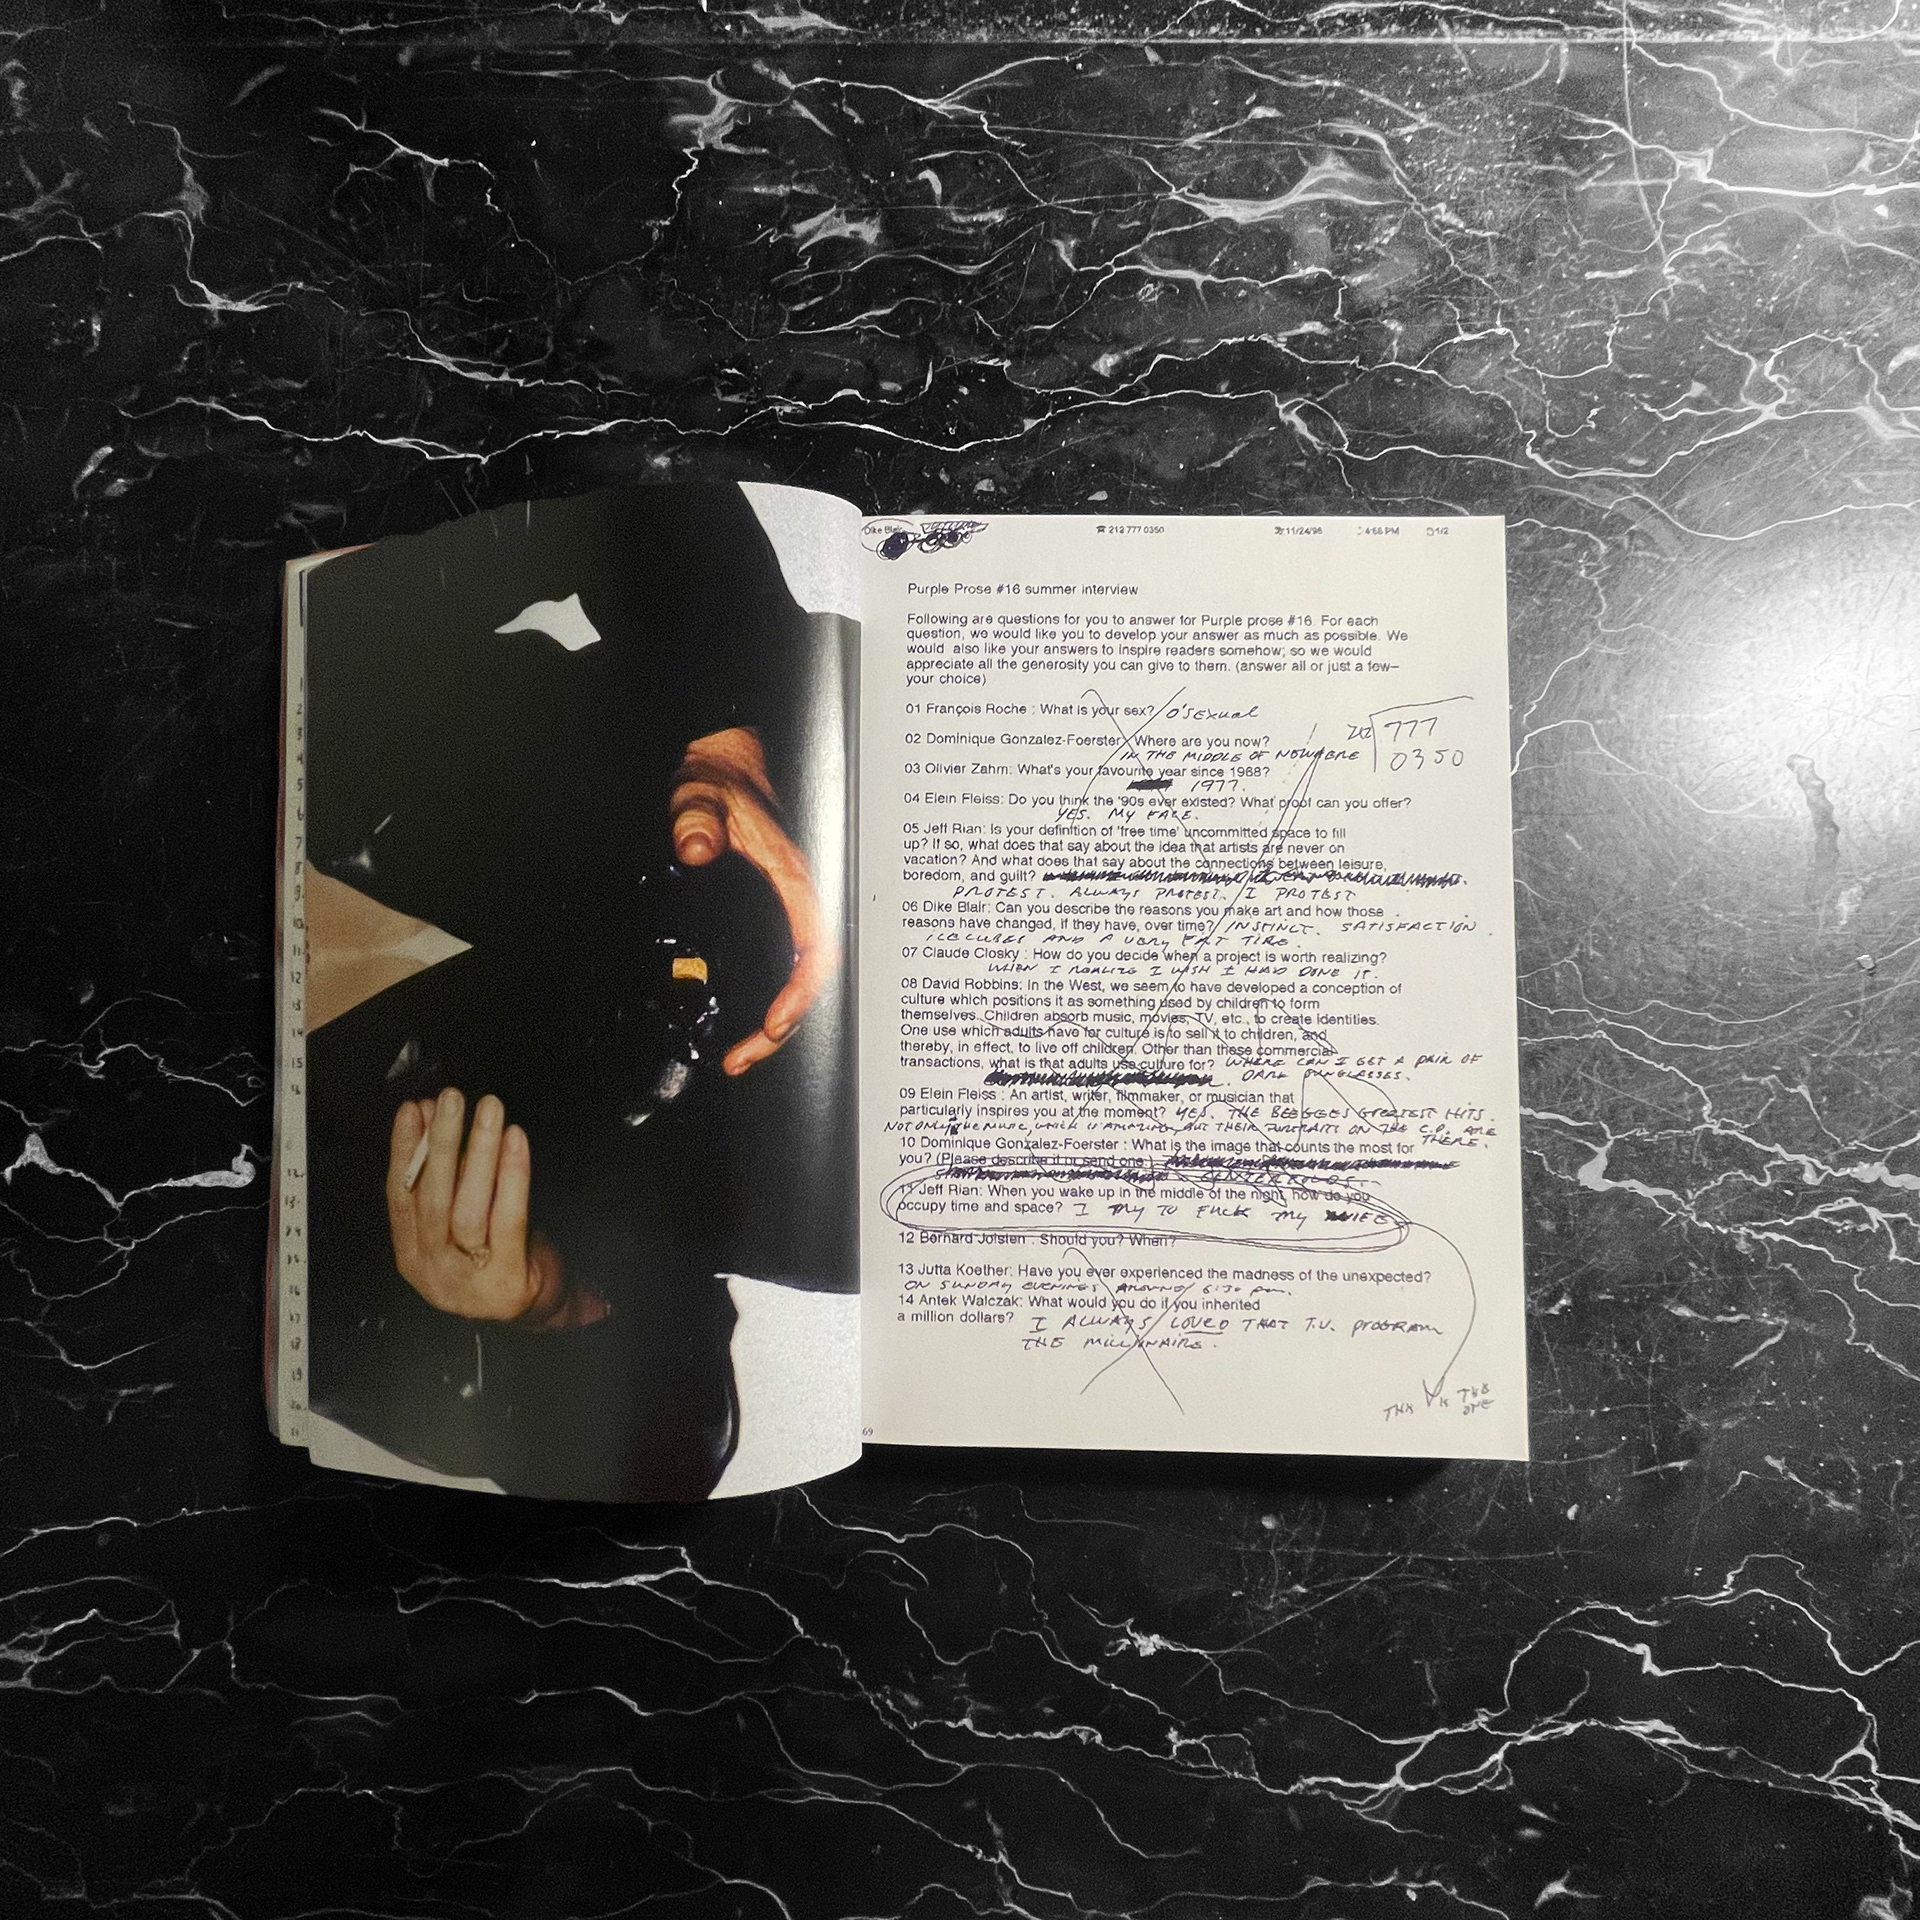 1
2
3
4
5
6
7
8
9
10
11
12
13
14
15
16
17
18
19
Dike Blair
☎ 212 777 0350
11/24/96
4:56 PM
1/2
Purple Prose #16 summer interview
Following are questions for you to answer for Purple prose #16. For each
question, we would like you to develop your answer as much as possible. We
would also like your answers to inspire readers somehow; so we would
appreciate all the generosity you can give to them. (answer all or just a few–
your choice)
01 François Roche : What is your sex? O'SEXUAL
212 777
0350
02 Dominique Gonzalez-Foerster: Where are you now?
IN THE MIDDLE OF NOWHERE
03 Olivier Zahm: What's your favourite year since 1968?
1977.
04 Elein Fleiss: Do you think the '90s ever existed? What proof can you offer?
YES. MY FACE.
05 Jeff Rian: Is your definition of 'free time' uncommitted space to fill
up? If so, what does that say about the idea that artists are never on
vacation? And what does that say about the connections between leisure,
boredom, and guilt?
PROTEST. ALWAYS PROTEST. I PROTEST
06 Dike Blair: Can you describe the reasons you make art and how those
reasons have changed, if they have, over time? INSTINCT. SATISFACTION.
ICECUBES AND A VERY FAT TIRE.
07 Claude Closky : How do you decide when a project is worth realizing?
WHEN I REALIZE I WISH I HAD DONE IT.
08 David Robbins: In the West, we seem to have developed a conception of
culture which positions it as something used by children to form
themselves. Children absorb music, movies, TV, etc., to create identities.
One use which adults have for culture is to sell it to children, and
thereby, in effect, to live off children. Other than these commercial
transactions, what is that adults use culture for? WHERE CAN I GET A PAIR OF
DARK SUNGLASSES.
09 Elein Fleiss : An artist, writer, filmmaker, or musician that
particularly inspires you at the moment? YES. THE BEEGEES GREATEST HITS.
NOT ONLY THE MUSIC, WHICH IS AMAZING, BUT THEIR PORTRAITS ON THE C.D. ARE
THERE.
10 Dominique Gonzalez-Foerster : What is the image that counts the most for
you? (Please describe it or send one)
11 Jeff Rian: When you wake up in the middle of the night, how do you
occupy time and space? I TRY TO FUCK MY WIFE
12 Bernard Joisten : Should you? When?
13 Jutta Koether: Have you ever experienced the madness of the unexpected?
ON SUNDAY EVENINGS AROUND 6:30 pm.
14 Antek Walczak: What would you do if you inherited
a million dollars? I ALWAYS LOVED THAT T.V. PROGRAM
THE MILLIONAIRE.
THE
ONE
69